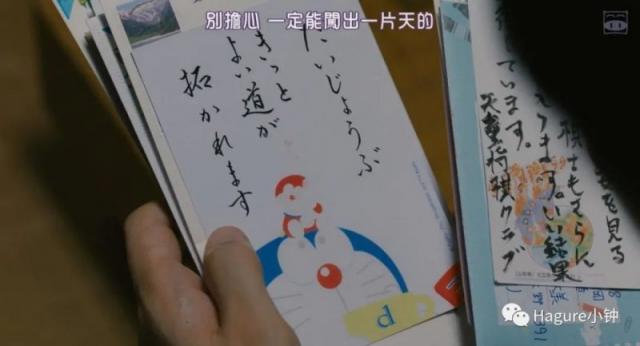 別擔心 一定能闖出一片天的
だいじょうぶ
きっと
よい道が
拓かれます
d
を見る
ます。いい結果
しています。
天童将棋クラブ
Hagure小钟